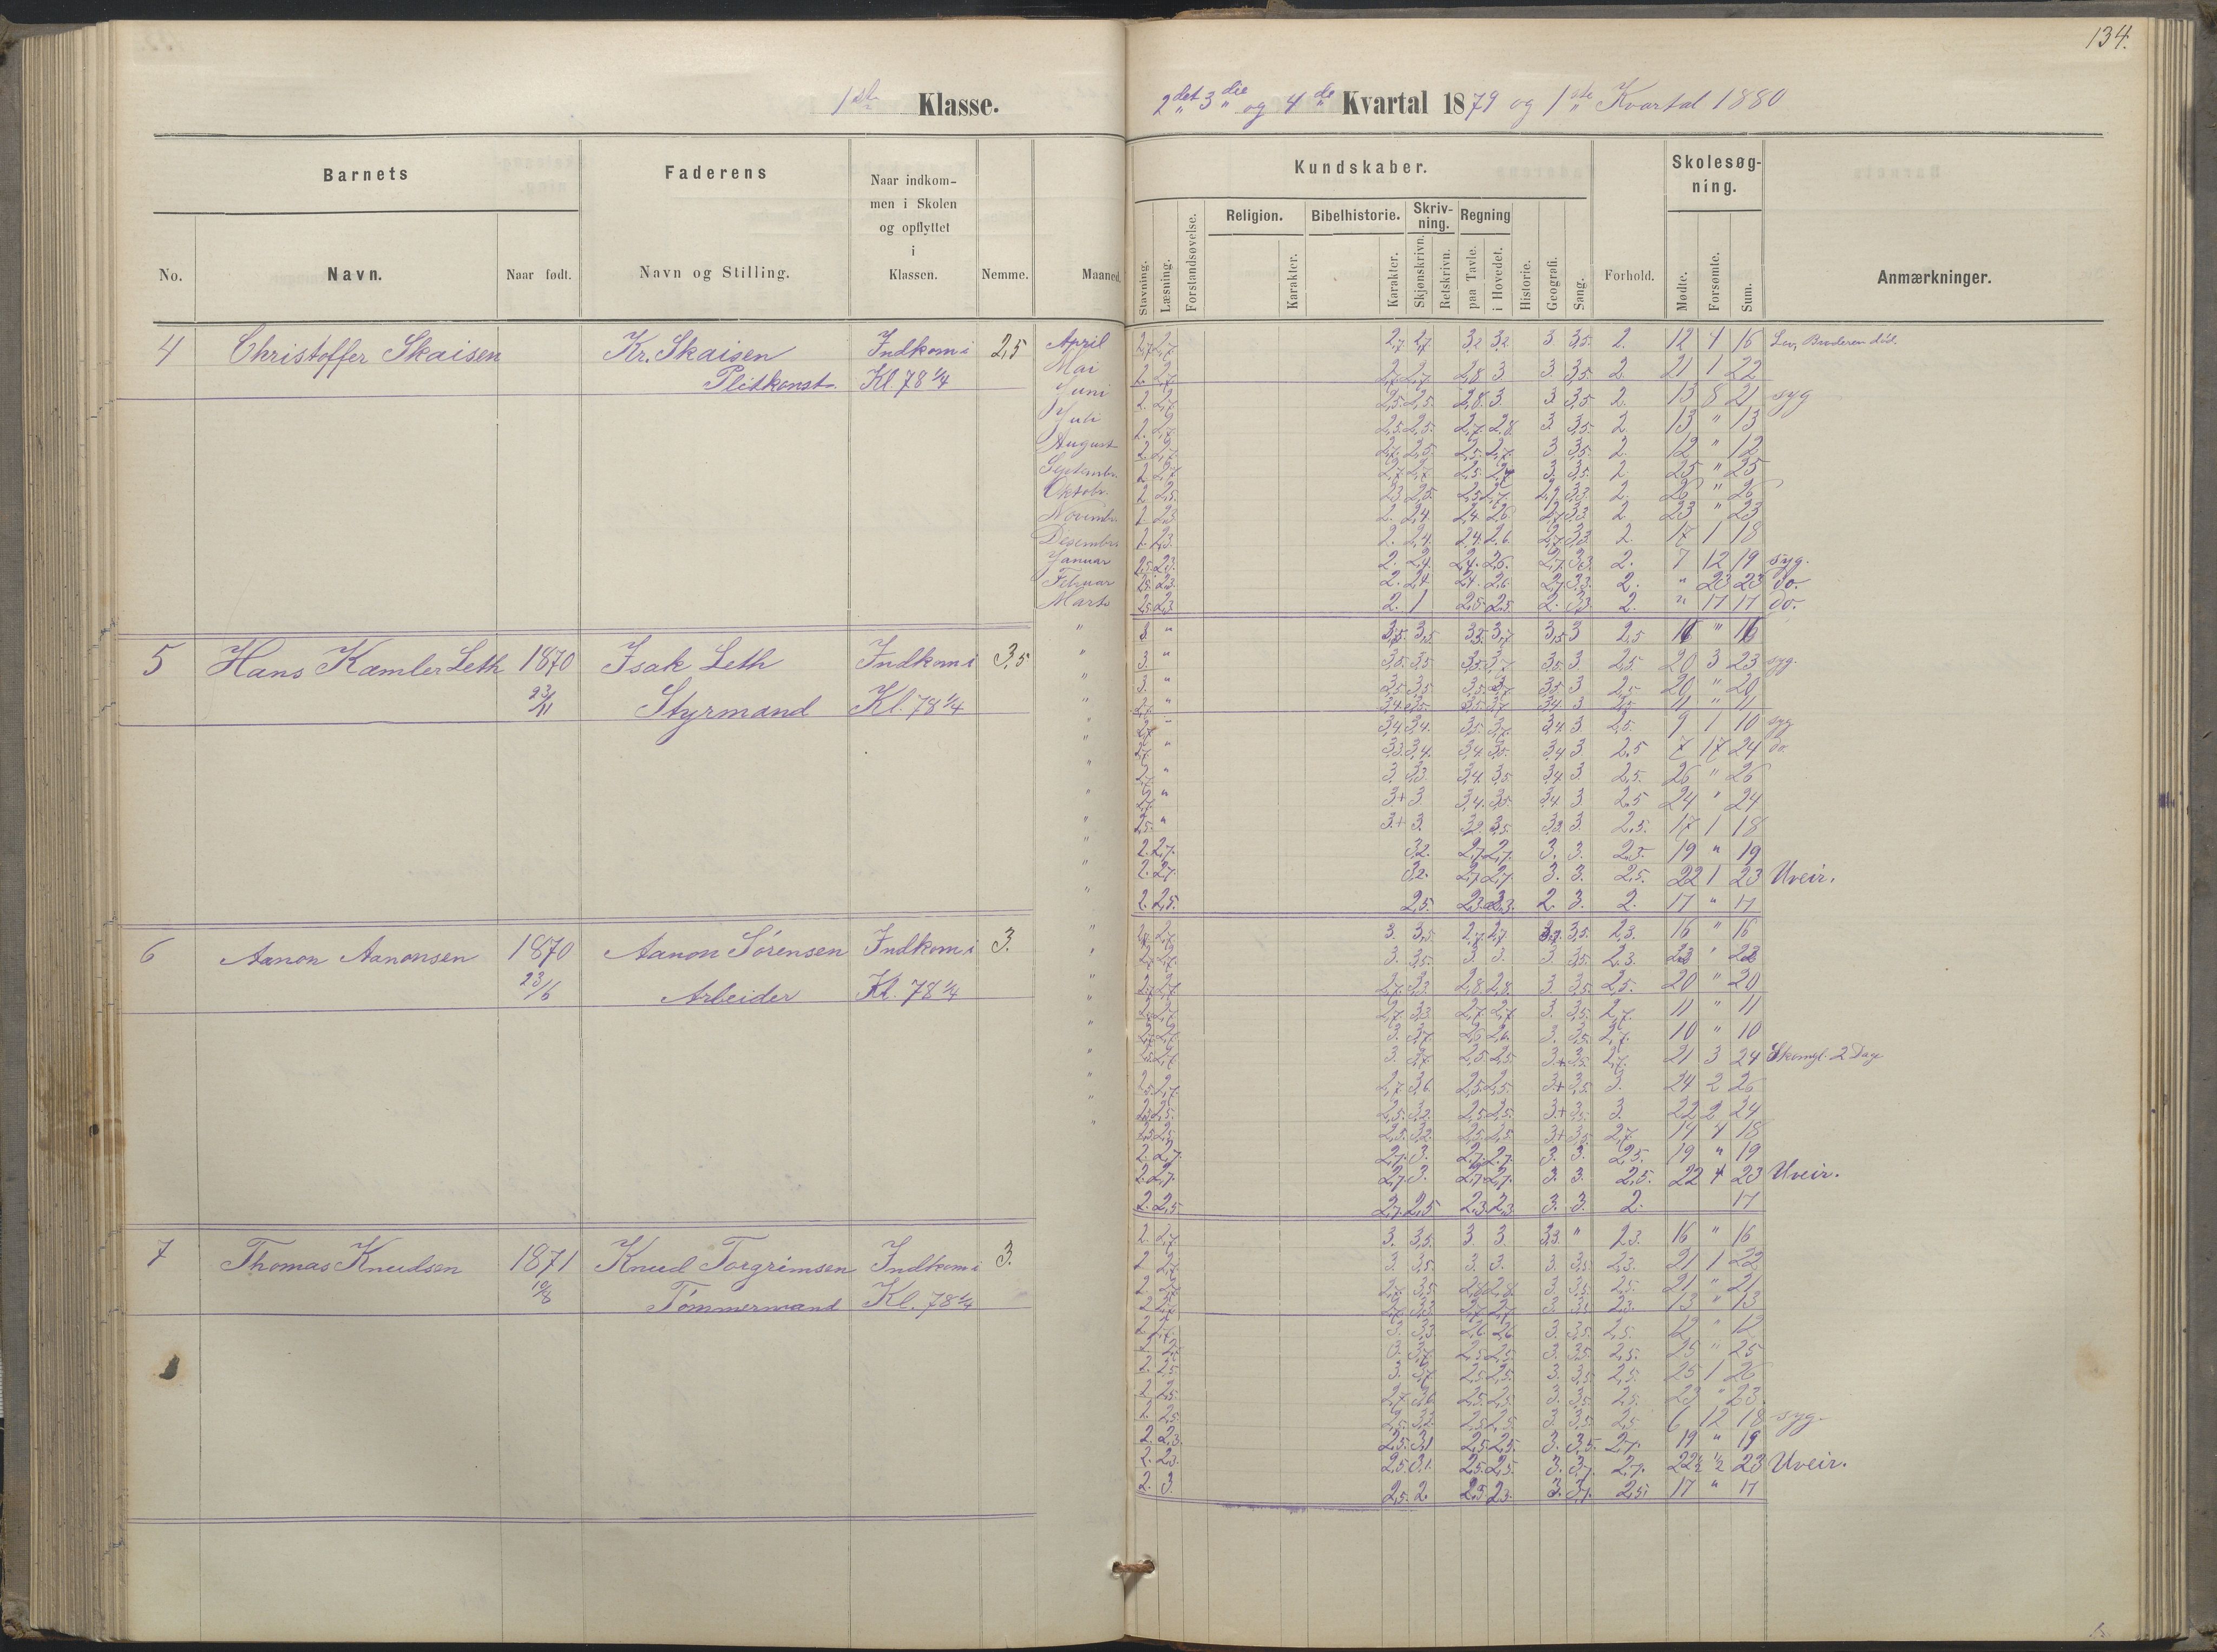 134.
1ste Klasse.
2det 3die og 4de Kvartal 1879 og 1ste Kvartal 1880
Barnets
Faderens
Naar indkommen i Skolen og opflyttet i Klassen.
Nemme.
Maaned.
No.
Navn.
Naar født.
Navn og Stilling.
Kundskaber.
Stavning.
Læsning.
Forstandsøvelse.
Religion.
Karakter.
Bibelhistorie.
Karakter.
Skrivning.
Skjønskrivn.
Retskrivn.
Regning
paa Tavle.
i Hovedet.
Historie.
Geografi.
Sang.
Forhold.
Skolesøgning.
Mødte.
Forsømte.
Sum.
Anmærkninger.
4 Christoffer Skaisen Kr. Skaisen Indkom i 2,5
Kl. 78 1/4
April 2,7 2,7 3,2 3,2 3. 3,5 2. 12 4 16 Broderen død.
Mai 2,8 3 3. 3,5. 2. 21 1 22
Juni 2. 2,7 2,5. 2,5. 2,8. 3. 3 3,5 2. 13 8 21 syg
Juli 2. 2,7 2,5. 2,5. 2,7. 2,8. 3. 3,5. 2. 13 " 13
August 2. 2,7 2,5. 2,7. 3 3,5. 2. 12 " 12
Septembr. 2. 2,7 2,7 2,7 2,5. 3. 3,5. 2. 25 " 25
Oktobr. 2. 2,5. 2,3 2,5. 2,7. 3,3. 2. 26 " 26
Novembr. 2. 2,3 2. 2,4. 2,4. 2,6 2,7 3,3. 2 23 " 23
Desembr. 2. 2,3. 2. 2,4. 2,4. 2,6. 2,7 3,3. 2. 17 1 18
Januar 2,5. 2,3. 2. 2,4. 2,4. 2,6. 2,7. 3,3. 2. 7 12 19 syg.
Februar 2,5. 2,3. 2. 2,4. 2,4. 2,6. 2,7 3,3. 2. " 23 23 do.
Marts 2,5. 2,3 2. 1 2,5. 2,5 2. 3,3. 2. " 17 17 do.
5 Hans Kamler Leth 1870 Isak Leth Indkom i 3,5
23/11 Styrmand Kl. 78 1/4
3. " 3,5. 3,5 3,5. 3,7 3,5 3 2,5 16 " 16
3. " 3,5. 3,5 3,5. 3,7 3,5 3. 2,5. 20 3 23 syg.
3. " 3,5. 3,5 3,5. 3,7 3,5 3 2,5 20 " 20
" 3,4. 3,5 3,5 3,7 3,4. 3 2,5 11 " 11
3,4. 3,4. 3,5. 3,7. 3,4. 3 2,5. 9 1 10 syg
" 3,3. 3,4. 3,4. 3,5. 3,4 3. 2,5 7 17 24 do.
" 3. 3,3 3,4. 3,5 3,4 3. 2,5. 26 " 26
" 3+ 3 3,4. 3,5. 3,4 3. 2,5 24 " 24
2,5. " 3+ 3. 3,2. 3,5. 3,3. 3. 2,5. 17 1 18
2. 2,7. 3,2. 2,7. 2,7. 3. 3. 2,3. 19 " 19
2. 2,7. 3,2. 2,7. 2,7. 3. 3. 2,5. 22 1 23 Uveir.
2. 2,5. 2,5. 2,3. 2,3. 2. 3. 2. 17 " 17
6 Aanon Aanonsen 1870 Aanon Sørensen Indkom i 3.
23/6 Arbeider Kl. 78 1/4
3. 3,5. 2,7. 2,7 3,7. 3,5. 2,3. 16 " 16
3. 3,5. 3. 3. 3 3,5. 2,3. 22 " 22
2,7 2,7 2,7. 3,3. 2,8. 2,8. 3. 3,5. 2,5. 20 " 20
2,7. 3,3 2,7. 2,7. 3. 3,5. 2,7. 11 " 11
3. 3,7. 2,6. 2,6. 3. 3,5. 2,7. 10 " 10
3. 3,7. 2,5. 2,5. 3+ 3,5. 2,7. 21 3 24 2 Dage
2,7. 3,6. 2,5. 2,5. 3+ 3,5. 3. 24 2 26
2,5. 2,5. 2,5. 3,2. 2,5. 2,5. 3+ 3,5. 3. 22 2 24
2,5. 2,5. 2,5. 3,2. 2,5. 2,5. 3+ 3,5. 2,7. 14 4 18
2. 2,7. 2,7. 3. 2,7. 2,7. 3. 3. 2,5. 19 " 19
2. 2,7. 2,7. 3. 2,7. 2,7. 3. 3. 2,5. 22 1 23 Uveir.
2. 2,5. 2,7. 2,5 2,3. 2,3. 3. 3. 2. 17
7 Thomas Knudsen 1871 Knud Torgrimsen Indkom i 3.
10/8 Tømmermand Kl. 78 1/4
2. 2,7 3. 3,5. 3. 3. 3,3. " 2,3. 16 " 16
2. 2,7 3. 3,5 3. 3. 3. 3,5 2,3. 21 1 22
2. 2,7 2,7. 3,5 2,8. 2,8. 3. 3,5. 2,5. 21 " 21
2. 2,7. 2,7. 3,3. 2,7. 2,7. 3. 3,5 2,3. 13 " 13
2. 2,7. 3. 3,3. 2,6. 2,6. 3. 3,5. 2,5. 12 " 12
3. 3,7. 2,5. 2,5. 3. 3,5. 2,5. 25 " 25
2. 2,5. 3. 3,7 2,5. 2,5. 3. 3,5 2,5. 25 1 26
2. 2,5. 2,7. 3,6. 2,5. 2,5. 3. 3,5. 2,5. 23 " 23.
2. 2,5. 2,5. 3,2. 2,5. 2,5. 3. 3,5 2,5 6 12 18 syg.
2. 2,3. 2,5. 3,1 2,5. 2,5. 3. 3,5. 2,7. 19 " 19
2. 2,3. 2,5. 3,1. 2,5. 2,5. 3. 3,7. 2,7. 22 1/2 1/2 23 Uveir.
2. 3. 2,5. 2. 2,3. 2,3. 3. 3,7. 2,5. 17 " 17